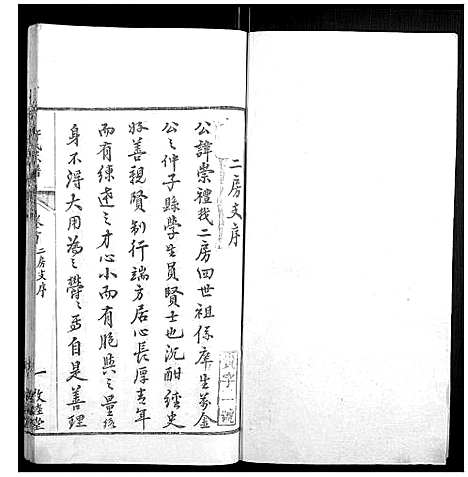 二房支序
公諱崇禮我二房四世祖係庠生萬金
公之仲子縣學生員賢士也沉酣經史
好善親賢制行端方居心長厚青年
而有練達之才心小而有胞與之量終
身不得大用為之鬱之焉自是善理
字一號
卷首 二房支序
一 敦睦堂